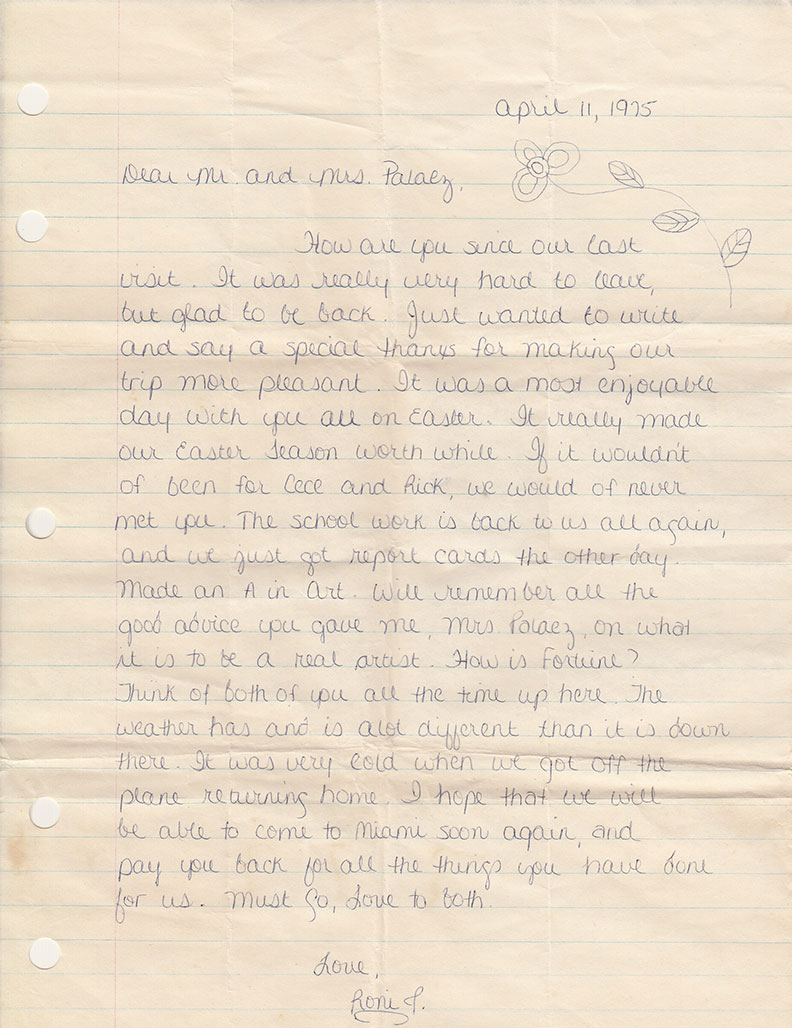 April 11, 1975
Dear Mr. and Mrs. Palaez,
How are you since our last
visit. It was really very hard to leave,
but glad to be back. Just wanted to write
and say a special thanks for making our
trip more pleasant. It was a most enjoyable
day with you all on Easter. It really made
our Easter Season worth while. If it wouldn't
of been for Cece and Rick, we would of never
met you. The school work is back to us all again,
and we just got report cards the other day.
Made an A in Art. Will remember all the
good advice you gave me, Mrs Palaez, on what
it is to be a real artist. How is Fortune?
Think of both of you all the time up here. The
weather has and is alot different than it is down
there. It was very cold when we got off the
plane returning home. I hope that we will
be able to come to Miami soon again, and
pay you back for all the things you have done
for us. Must Go, Love to both.
Love,
Roni J.